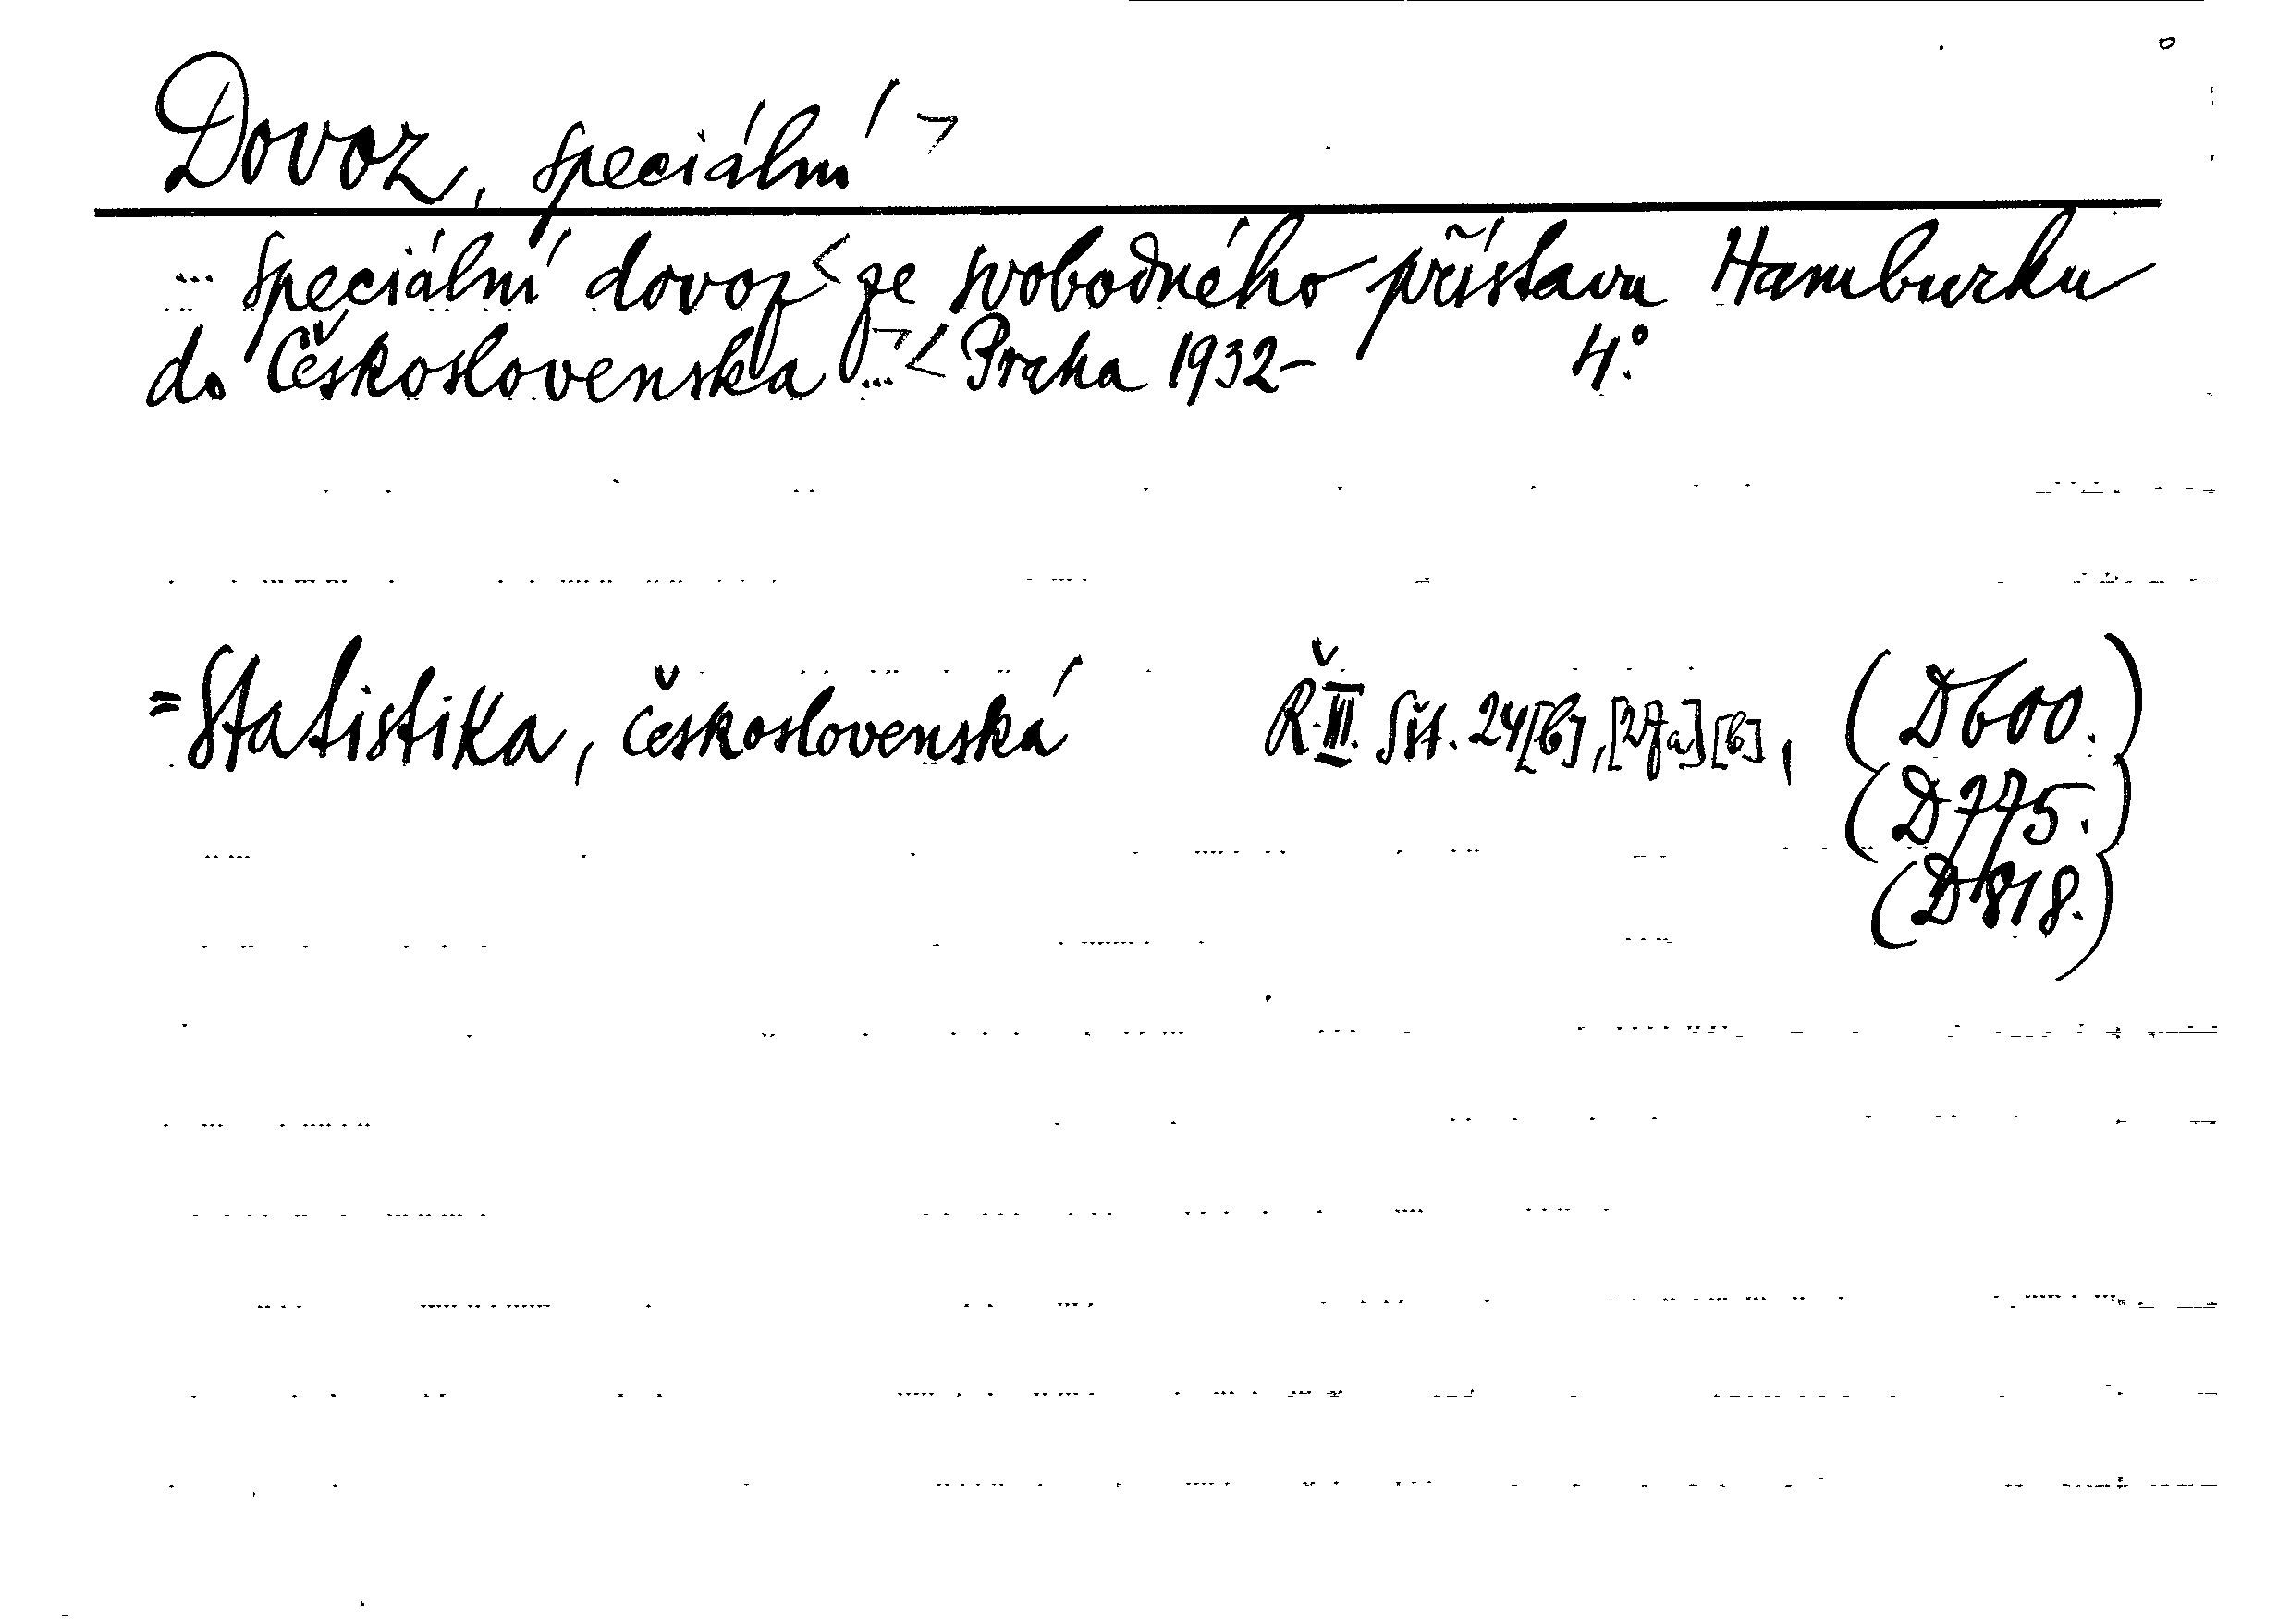 Dovoz, speciální >
... speciální dovoz < ze svobodného přístavu Hamburku
do Československa > ... < Praha 1932- 4°.
= Statistika, československá Ř. III. Sšt. 24[b], [27a] [b], (D600.)
(D775.)
(D818.)